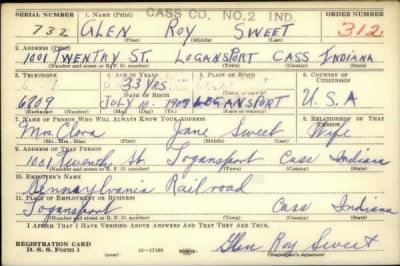 SERIAL NUMBER 1. NAME (Print) CASS CO. NO.2 IND ORDER NUMBER
732 GLEN ROY SWEET 312
(First) (Middle) (Last)
2. ADDRESS (Print)
1001 TWENTRY ST. LOGANSPORT CASS INDIANA
(Number and street or R. F. D. number) (Town) (County) (State)
3. TELEPHONE 4. AGE IN YEARS 5. PLACE OF BIRTH 6. COUNTRY OF CITIZENSHIP
33 YRS
DATE OF BIRTH
6809 JULY 10 - 1907 LOGANSPORT U.S.A
(Exchange) (Number) (Mo.) (Day) (Yr.) (State or country)
7. NAME OF PERSON WHO WILL ALWAYS KNOW YOUR ADDRESS 8. RELATIONSHIP OF THAT PERSON
Mrs. Clora Jane Sweet Wife
(Mr., Mrs., Miss) (First) (Middle) (Last)
9. ADDRESS OF THAT PERSON
1001 Twentry St. Logansport Cass Indiana
(Number and street or R. F. D. number) (Town) (County) (State)
10. EMPLOYER'S NAME
Pennsylvania Railroad
11. PLACE OF EMPLOYMENT OR BUSINESS
Logansport Cass Indiana
(Number and street or R. F. D. number) (Town) (County) (State)
I AFFIRM THAT I HAVE VERIFIED ABOVE ANSWERS AND THAT THEY ARE TRUE.
REGISTRATION CARD
D. S. S. Form 1 16—17105 Glen Roy Sweet
(Registrant's signature)